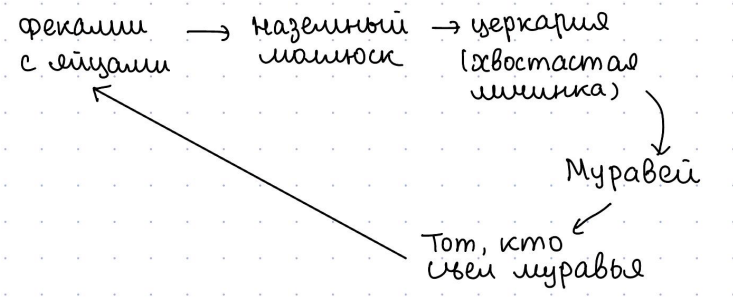 фекалии
с яйцами
наземный
моллюск
церкария
(хвостастая
личинка)
Муравей
Тот, кто
съел муравья